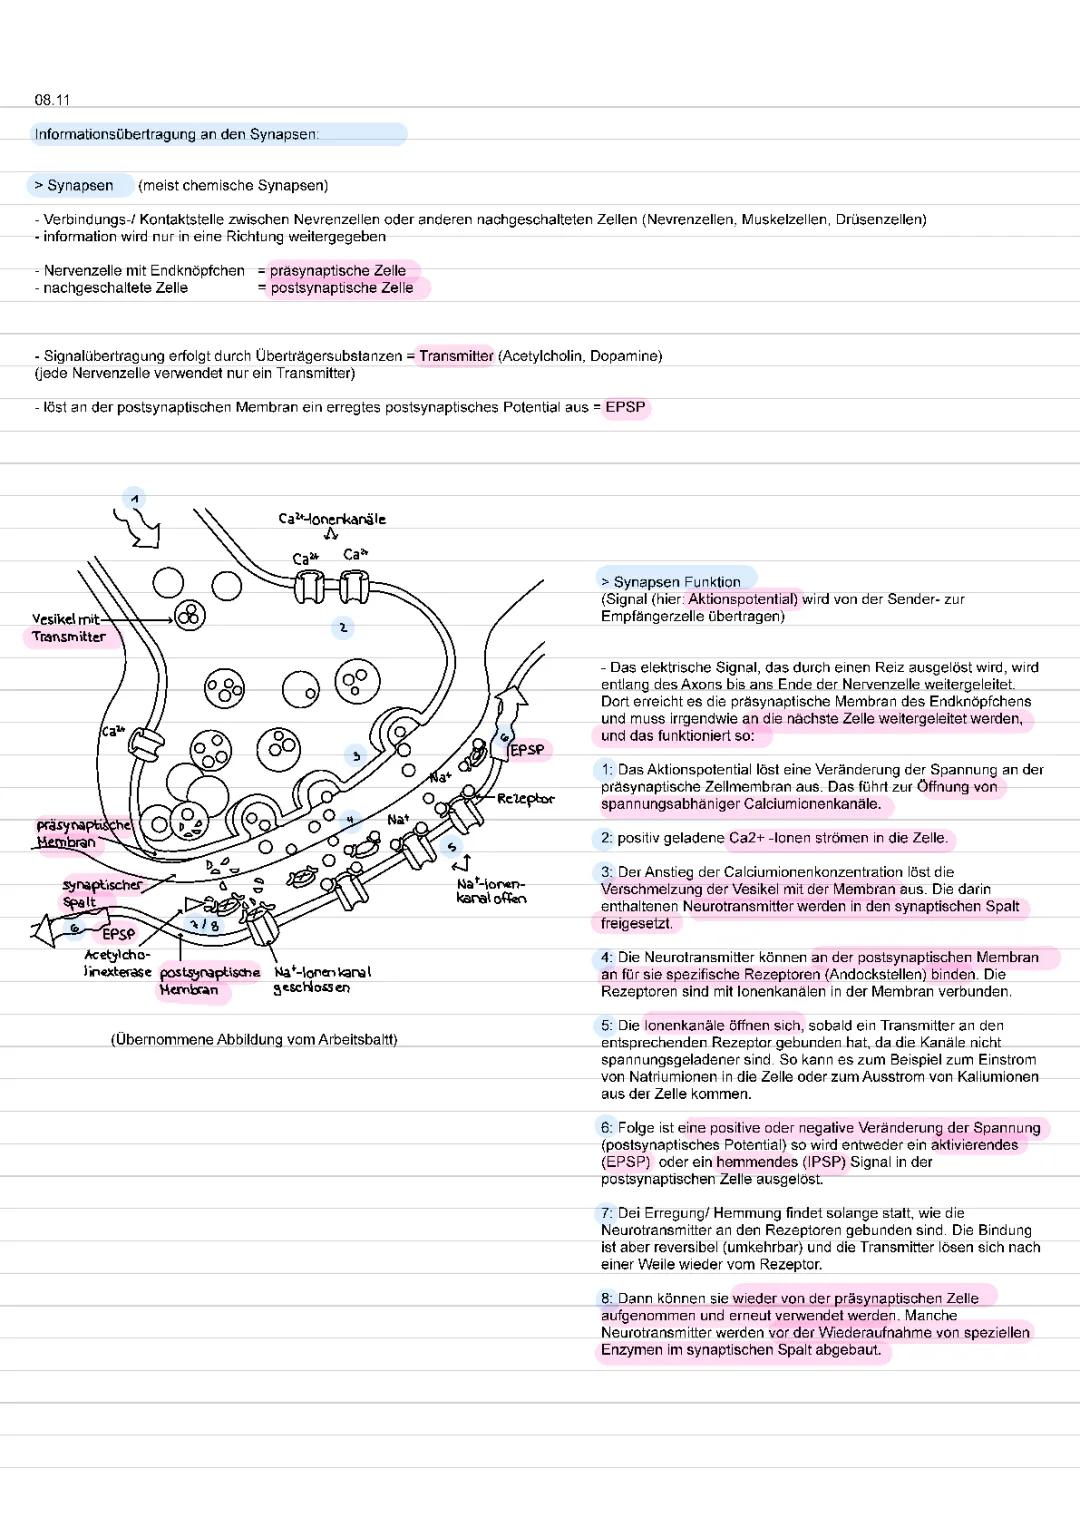 08.11
Informationsübertragung an den Synapsen:
> Synapsen (meist chemische Synapsen)
- Verbindungs-/ Kontaktstelle zwischen Nevrenzellen oder anderen nachgeschalteten Zellen (Nevrenzellen, Muskelzellen, Drüsenzellen)
- information wird nur in eine Richtung weitergegeben
- Nervenzelle mit Endknöpfchen = präsynaptische Zelle
- nachgeschaltete Zelle = postsynaptische Zelle
- Signalübertragung erfolgt durch Überträgersubstanzen = Transmitter (Acetylcholin, Dopamine)
(jede Nervenzelle verwendet nur ein Transmitter)
- löst an der postsynaptischen Membran ein erregtes postsynaptisches Potential aus = EPSP
1
Ca²⁺-Ionenkanäle
Ca²⁺ Ca²⁺
Vesikel mit
Transmitter
2
Ca²⁺
3
6
EPSP
Na⁺
Rezeptor
4
Na⁺
präsynaptische
Membran
5
synaptischer
Spalt
Na⁺-Ionen-
kanal offen
6
EPSP
7/8
Acetylcho-
linexterase
postsynaptische
Membran
Na⁺-Ionenkanal
geschlossen
(Übernommene Abbildung vom Arbeitsbaltt)
> Synapsen Funktion
(Signal (hier: Aktionspotential) wird von der Sender- zur
Empfängerzelle übertragen)
- Das elektrische Signal, das durch einen Reiz ausgelöst wird, wird
entlang des Axons bis ans Ende der Nervenzelle weitergeleitet.
Dort erreicht es die präsynaptische Membran des Endknöpfchens
und muss irgendwie an die nächste Zelle weitergeleitet werden,
und das funktioniert so:
1: Das Aktionspotential löst eine Veränderung der Spannung an der
präsynaptische Zellmembran aus. Das führt zur Öffnung von
spannungsabhäniger Calciumionenkanäle.
2: positiv geladene Ca2+ -Ionen strömen in die Zelle.
3: Der Anstieg der Calciumionenkonzentration löst die
Verschmelzung der Vesikel mit der Membran aus. Die darin
enthaltenen Neurotransmitter werden in den synaptischen Spalt
freigesetzt.
4: Die Neurotransmitter können an der postsynaptischen Membran
an für sie spezifische Rezeptoren (Andockstellen) binden. Die
Rezeptoren sind mit Ionenkanälen in der Membran verbunden.
5: Die Ionenkanäle öffnen sich, sobald ein Transmitter an den
entsprechenden Rezeptor gebunden hat, da die Kanäle nicht
spannungsgeladener sind. So kann es zum Beispiel zum Einstrom
von Natriumionen in die Zelle oder zum Ausstrom von Kaliumionen
aus der Zelle kommen.
6: Folge ist eine positive oder negative Veränderung der Spannung
(postsynaptisches Potential) so wird entweder ein aktivierendes
(EPSP) oder ein hemmendes (IPSP) Signal in der
postsynaptischen Zelle ausgelöst.
7: Dei Erregung/ Hemmung findet solange statt, wie die
Neurotransmitter an den Rezeptoren gebunden sind. Die Bindung
ist aber reversibel (umkehrbar) und die Transmitter lösen sich nach
einer Weile wieder vom Rezeptor.
8: Dann können sie wieder von der präsynaptischen Zelle
aufgenommen und erneut verwendet werden. Manche
Neurotransmitter werden vor der Wiederaufnahme von speziellen
Enzymen im synaptischen Spalt abgebaut.